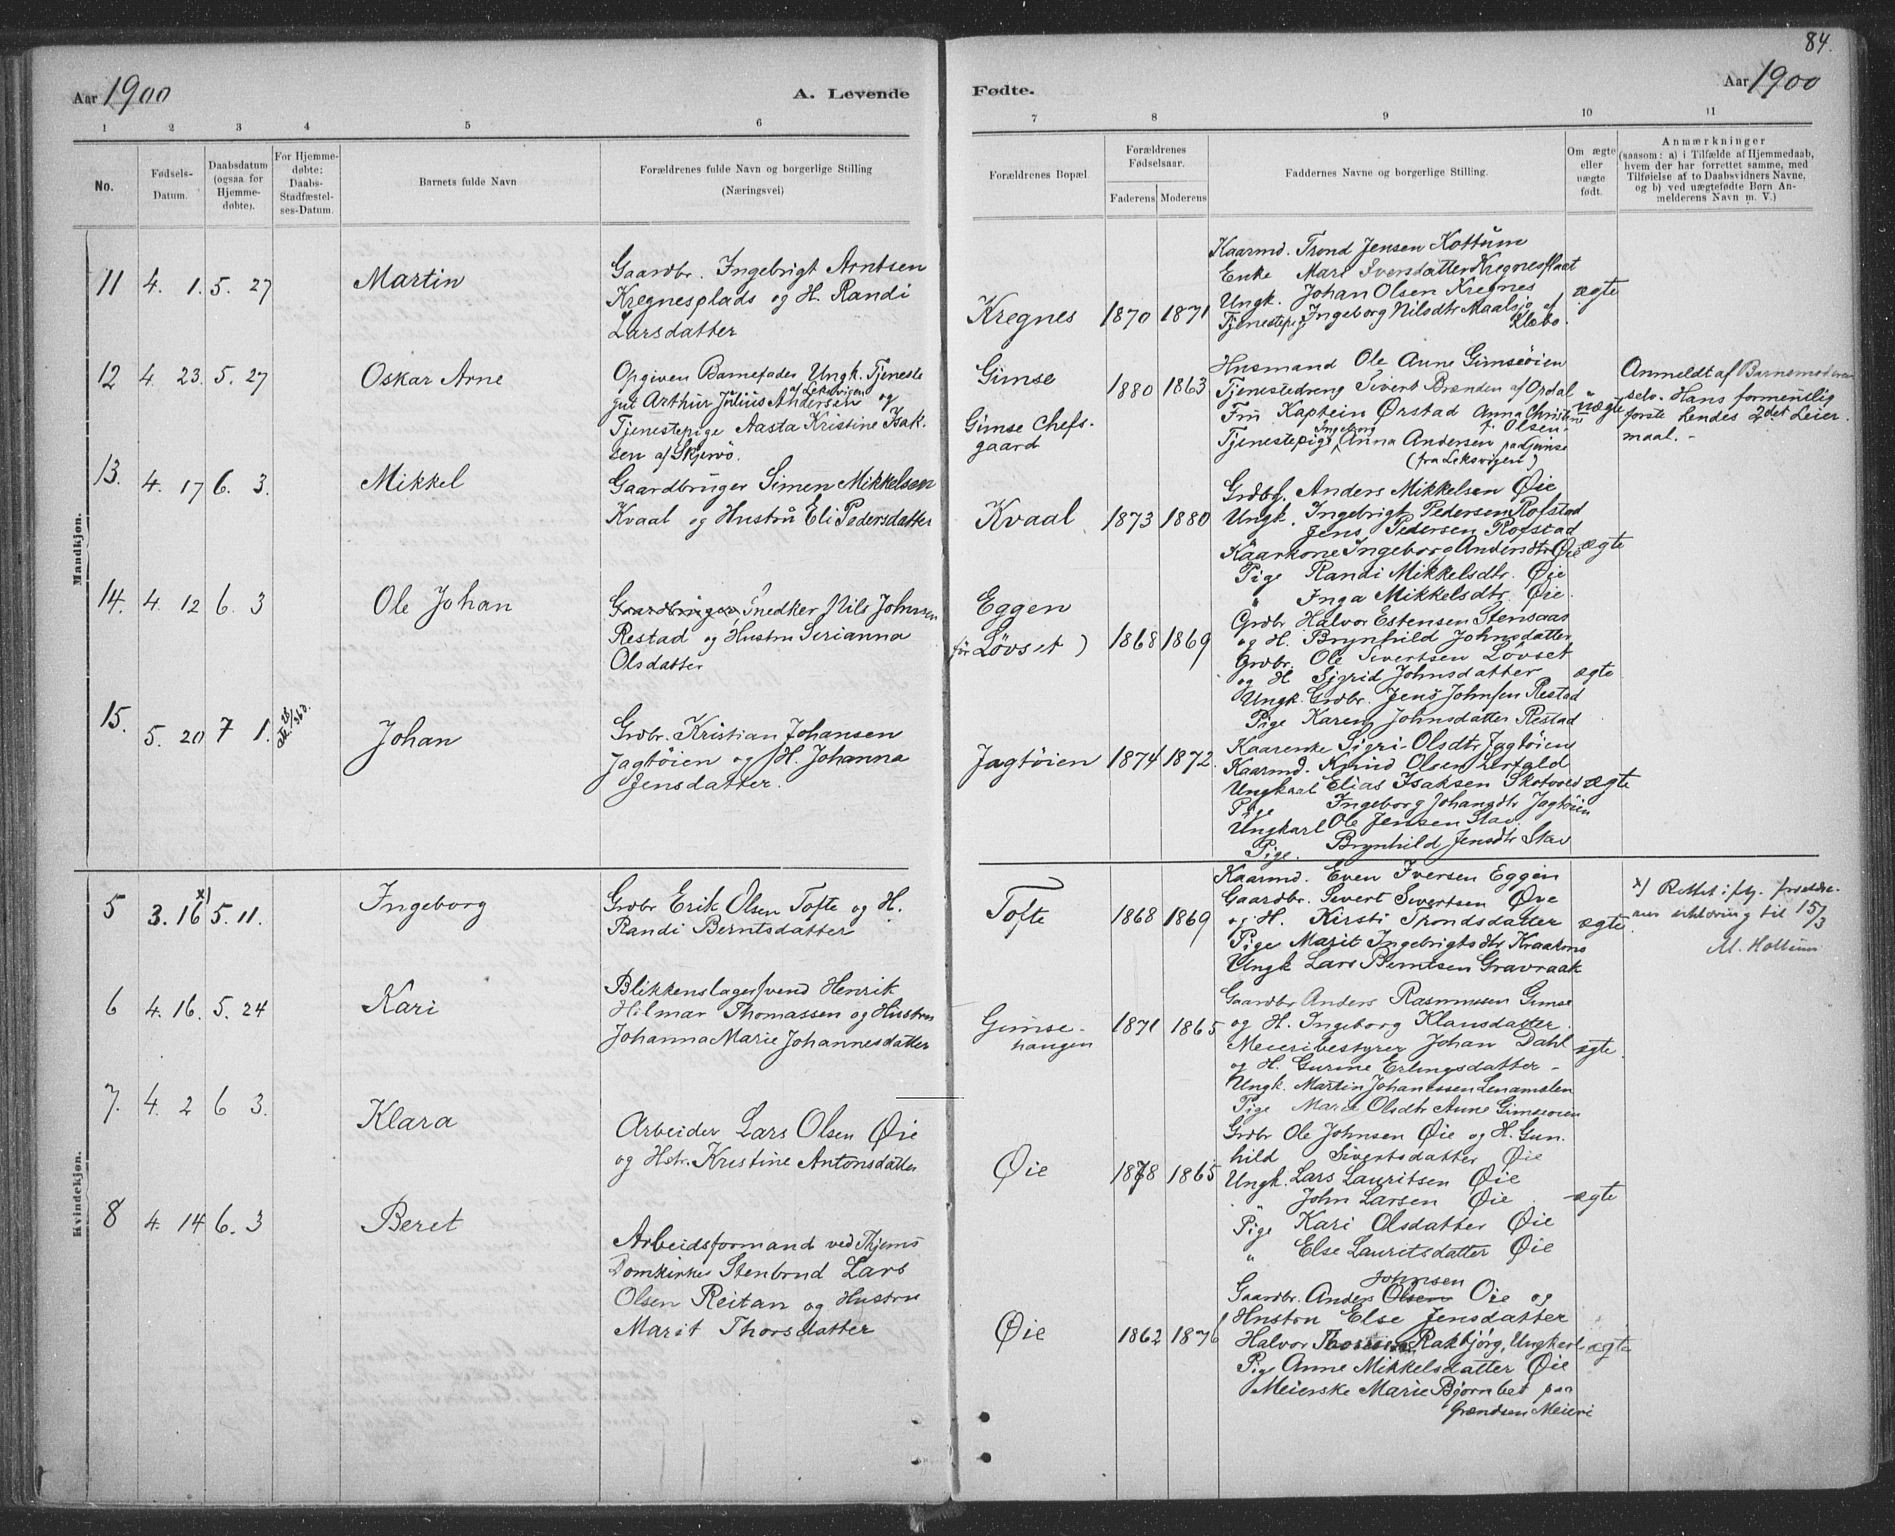 84.
Aar 1900
A. Levende
Fødte.
Aar 1900
1 2 3 4 5 6 7 8 9 10 11
No.
Fødsels-
Datum.
Daabsdatum
(ogsaa for
Hjemme-
døbte).
For Hjemme-
døbte:
Daabs-
Stadfæstel-
ses-Datum.
Barnets fulde Navn
Forældrenes fulde Navn og borgerlige Stilling
(Næringsvei)
Forældrenes Bopæl.
Forældrenes
Fødselsaar.
Faderens
Moderens
Faddernes Navne og borgerlige Stilling.
Om ægte
eller
uægte
født.
Anmærkninger
(saasom: a) i Tilfælde af Hjemmedaab,
hvem der har forrettet samme, med
Tilføielse af to Daabsvidners Navne,
og b) ved uægtefødte Børn An-
melderens Navn m. V.)
Mandkjøn.
11 4. 1. 5. 27 Martin
Gaardbr. Ingebrigt Arntsen
Kregnesplads og H. Randi
Larsdatter
Kregnes 1870 1871
Kaarmd. Trond Jensen Kottum
Enke Marit Iversdatter Kregnesflaat
Ungk. Johan Olsen Kregnes
Tjenestepig Ingeborg Nilsdtr Maalsjø af
Klæbo.
ægte
12 4. 23. 5. 27 Oskar Arne
Opgiven Barnefader Ungk. Tjeneste
gut Arthur Julius Andersen af Leksvigen og
Tjenestepige Aasta Kristine Isak-
sen af Skjervø.
Gimse
Gimse Chefs-
gaard
1880 1863
Husmand Ole Aune Gimseøien
Tjenestedreng Sivert Brænden af Opdal
Fru Kaptein Ørstad Anna Christine
f. Olsen
Tjenestepige Ingeborg Anna Andersen paa Gimse
(fra Leksvigen)
uægte
Anmeldt af Barnemoderen
selv. Hans formentlig
første hendes 2det Leier-
maal. -
13. 4. 17 6. 3. Mikkel
Gaardbruger Simen Mikkelsen
Kvaal og Hustru Eli Pedersdatter
Kvaal 1873 1880
Grdbr. Anders Mikkelsen Øie
Ungk. Ingebrigt Pedersen Rofstad
Jens Pedersen Rofstad
Kaarkone Ingeborg Andersdtr Øie
Pige Randi Mikkelsdtr. Øie
" Inga Mikkelsdtr. Øie.
ægte
14. 4. 12 6. 3 Ole Johan
Gaardbruger, Snedker Nils Johnsen
Restad og Hustru Serianna
Olsdatter
Eggen
før Løvset)
1868 1869
Grdbr Halvor Estensen Stensaas
og H. Brynhild Johnsdatter
Grdbr. Ole Sivertsen Løvset
og H Sigrid Johnsdatter
Ungk. Grdbr. Jens Johnsen Restad
Pige Karen Johnsdatter Restad
ægte
15. 5. 20 7 1. Johan
Grdbr. Kristian Johansen
Jagtøien og H. Johanna
Jensdatter.
Jagtøien 1874 1872.
Kaarenke Sigri Olsdtr Jagtøien
Kaarmd. Olsen
Ungkaal Elias Isaksen
Pige Ingeborg Johansdtr Jagtøien
Ungkarl Ole Jensen Skav
Pige. Brynhild Jensdtr Skav
ægte
Kvindekjøn.
5 3. 16 x) 5. 11. Ingeborg
Grdbr Erik Olsen Tofte og H.
Randi Berntsdatter
Tofte 1868 1869
Kaarmd. Even Iversen Eggen
Gaardbr. Sivert Sivertsen Øye
og H. Kirsti Trondsdatter
Pige Marit Ingebrigtsdtr Kraakmo
Ungk Lars Berntsen Gravraak
ægte
x) Rettet iflg. forældre-
nes erklæring til 15/3
M. Hollum
6 4. 16. 5. 24 Kari
Blikkenslagersvend Henrik
Hilmar Thomassen og Hustru
Johanna Marie Johannesdatter
Gimse-
haugen
1871 1865
Gaardbr Anders Rasmussen Gimse
og H. Ingeborg Klausdatter.
Meieribestyrer Johan Dahl
og H. Gurine Erlingsdatter -
Ungk. Martin Johanessen Lenamelen
Pige Marie Olsdtr Aune Gimseøien
ægte.
7. 4. 2 6 3. Klara
Arbeider Lars Olsen Øie
og Hstr. Kristine Antonsdatter
Øie 1878 1865
Grdbr Ole Johnsen Øie og H. Gun-
hild Sivertsdatter Øie
Ungk. Lars Lauritsen Øie
" John Larsen Øie
Pige Kari Olsdatter Øie
" Else Lauritsdatter Øie
ægte
8 4. 14 6. 3 Beret
Arbeidsformand ved Thjems
Domkirkes Stenbrud Lars
Olsen Reitan og Hustru
Marit Thorsdatter
Øie 1862 1876
Gaardbr. Anders Olsen Johnsen Øie og
Hustru Else Jensdatter
Halvor Rakbjørg, Ungkarl
Pige Anne Mikkelsdatter Øie
Meierske Marie Bjørnbet paa
Grændsen Meieri
ægte